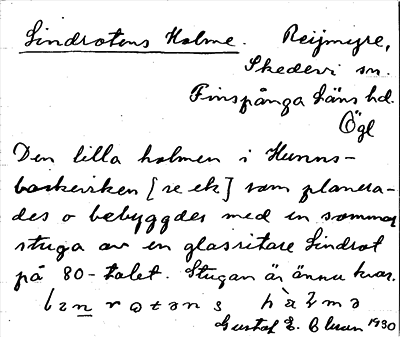 Lindrotens Holme. Reijmyre,
Skedevi sn.
Finspånga läns hd.
Ögl
Den lilla holmen i Hunns-
baskeviken [se ek] som planera-
des o bebyggdes med en sommar
stuga av en glasritare Lindrot
på 80-talet. Stugan är ännu kvar.
Gustaf E. 1930